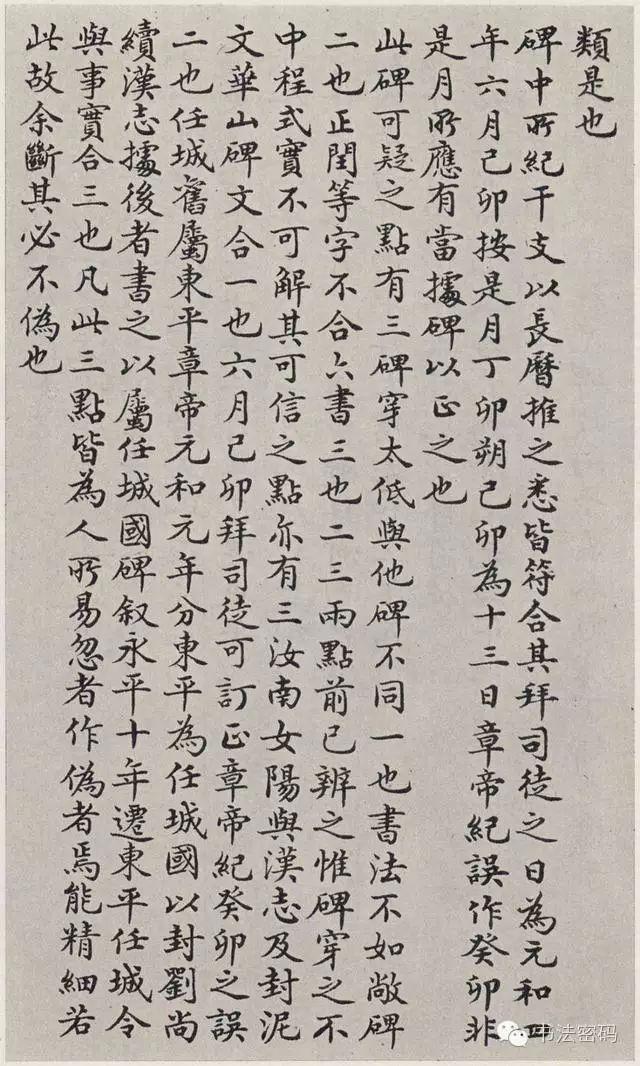 類是也
碑中所紀干支以長曆推之悉皆符合其拜司徒之日為元和四
年六月己卯按是月丁卯朔己卯為十三日章帝紀誤作癸卯非
是月所應有當據碑以正之也
此碑可疑之點有三碑穿太低與他碑不同一也書法不如敞碑
二也正閏等字不合六書三也二三兩點前已辨之惟碑穿之不
中程式實不可解其可信之點亦有三汝南女陽與漢志及封泥
文華山碑文合一也六月己卯拜司徒可訂正章帝紀癸卯之誤
二也任城舊屬東平章帝元和元年分東平為任城國以封劉尚
續漢志據後者書之以屬任城國碑叙永平十年遷東平任城令
與事實合三也凡此三點皆為人所易忽者作偽者焉能精細若
此故余斷其必不偽也
书法密码